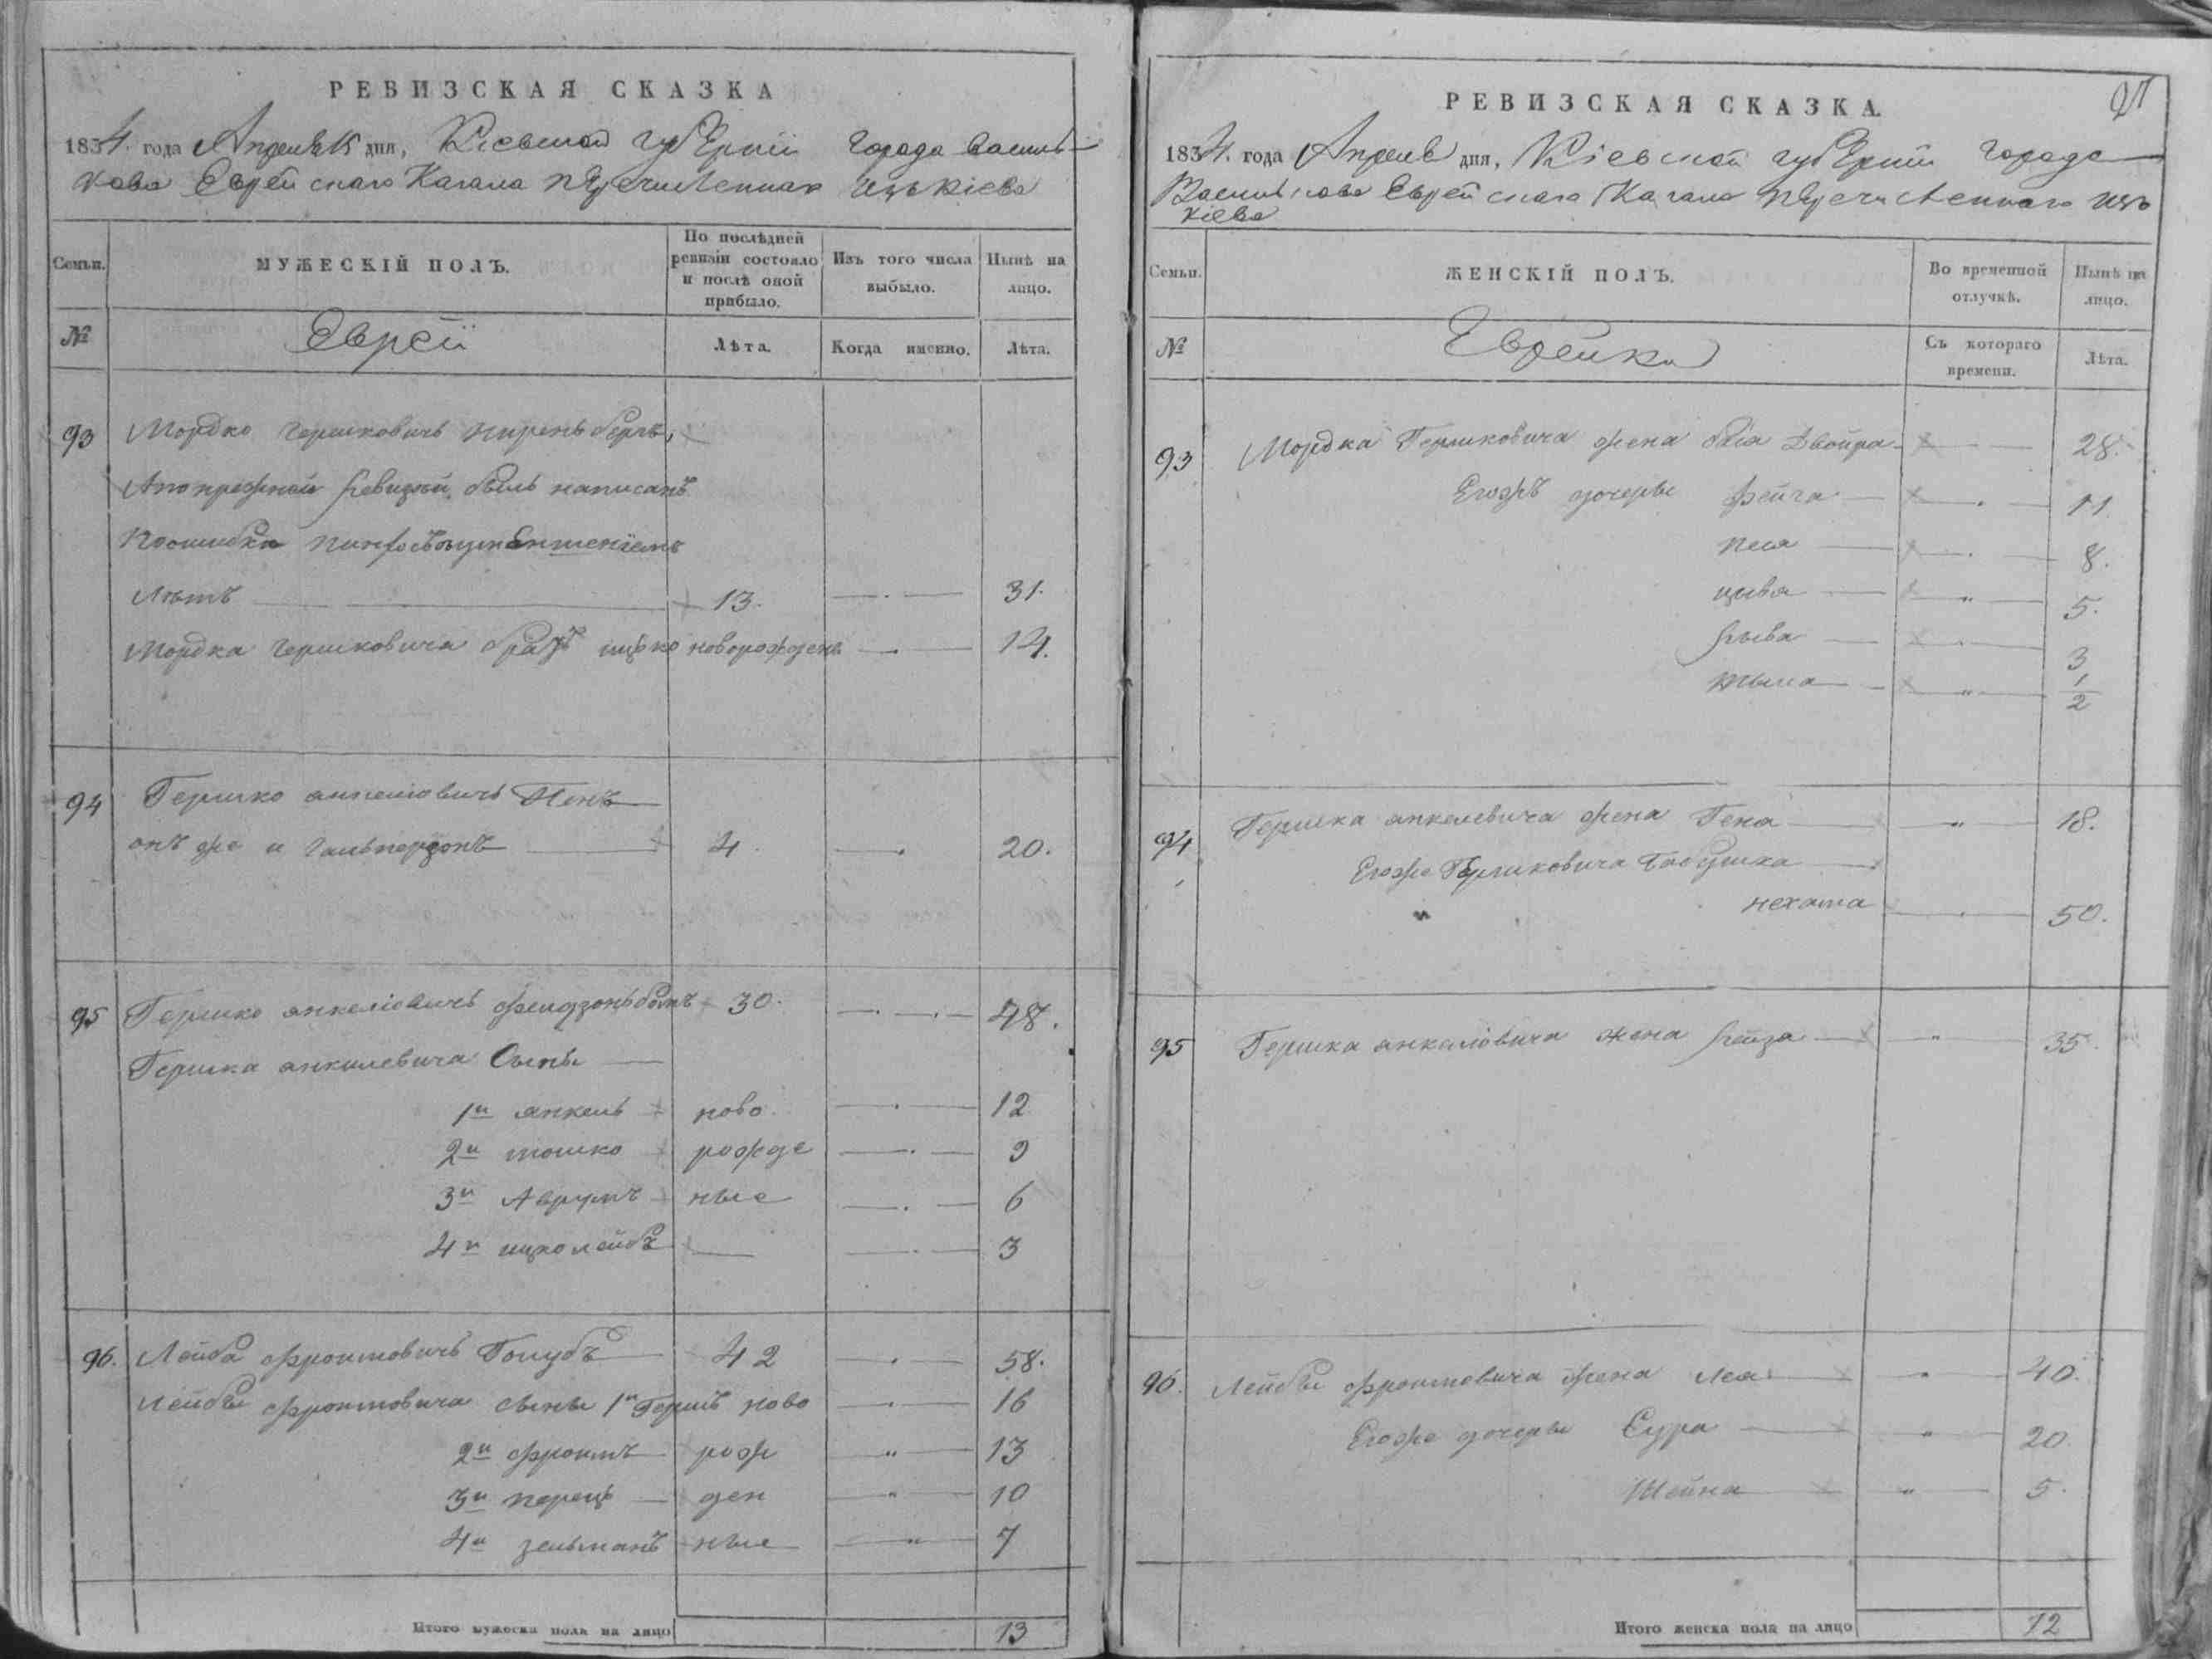 РЕВИЗСКАЯ СКАЗКА
1834. года Апреля 15 дня, Кіевской губерніи города Василь-
кова Еврейскаго Кагала перечисленнаго изъ Кіева
Семьи.
МУЖЕСКІЙ ПОЛЪ.
По послѣдней ревизіи состояло и послѣ оной прибыло.
Изъ того числа выбыло.
Нынѣ на лицо.
№
Евреи
Лѣта.
Когда именно.
Лѣта.
93 Мордко Гершковичъ Ниренбергъ,
А по прежней ревизіи былъ написанъ
По ошибки
Лѣтъ 13. 31.
Мордка Гершковича братъ ицко новорожден 14.
94 Гершко анкеліовичъ
онъ же и Гальперзонъ 4. 20.
95 Гершко анкеліовичъ 30. 48.
Гершка анкилевича Сыны
1й анкель ново 12
2й мошко рожде 9
3й Аврумъ ные 6
4й ицко лейбъ 3
96. Лейба Фроимовичъ Голубъ 42 58.
Лейбы Фроимовича сыны 1й Гершъ ново 16
2й Фроимъ рож 13
3й перецъ ден 10
4й зельманъ ные 7
Итого мужеска пола на лицо 13
РЕВИЗСКАЯ СКАЗКА.
1834. года Апреля дня, Кіевской губерніи города
Василькова Еврейскаго Кагала перечисленнаго изъ
Кіева
Семьи.
ЖЕНСКІЙ ПОЛЪ.
Во временной отлучкѣ.
Нынѣ на лицо.
№
Еврейки
Съ котораго времени.
Лѣта.
93 Мордка Гершковича жена Двойра 28.
Егожъ дочеры Фейга 11
песя 8.
цивя 5.
рыва 3
1/2
94 Гершка анкелевича жена Гена 18.
Егоже Гершковича бабушка
нехама 50.
95 Гершка анкеліовича жена рейза 35.
96. Лейбы Фроимовича жена Лея 40.
Егоже дочеры Сура 20
Шейна 5.
Итого женска пола на лицо 12